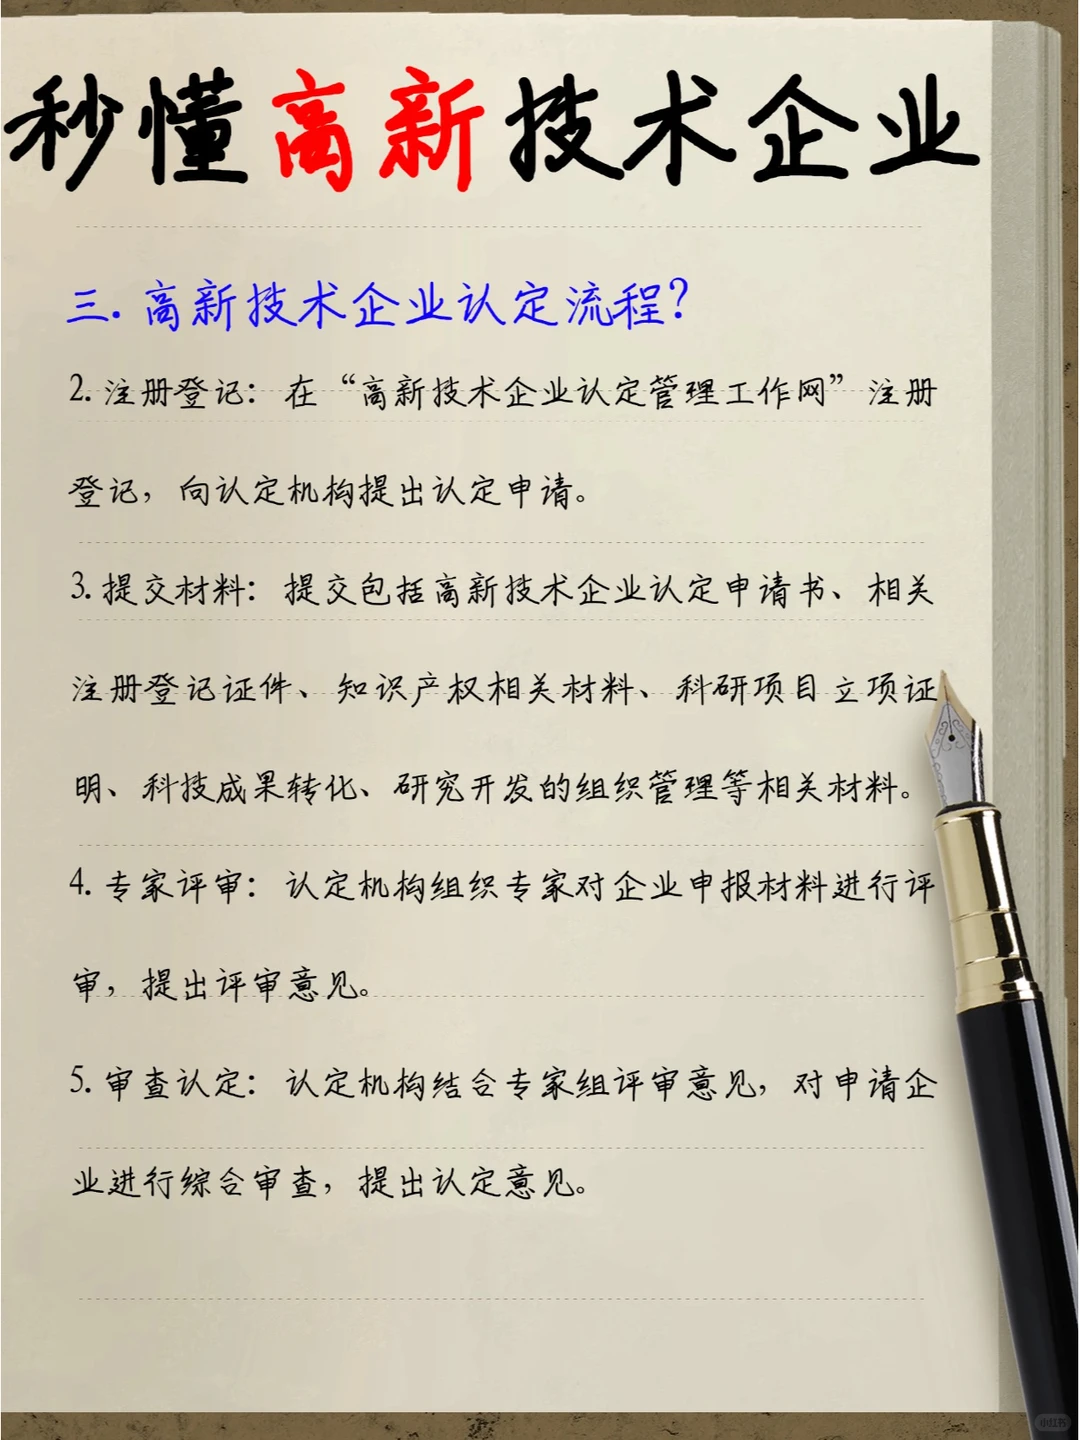 秒懂高新技术企业
三.高新技术企业认定流程?
2.注册登记：在“高新技术企业认定管理工作网”注册
登记，向认定机构提出认定申请。
3.提交材料：提交包括高新技术企业认定申请书、相关
注册登记证件、知识产权相关材料、科研项目立项证
明、科技成果转化、研究开发的组织管理等相关材料。
4.专家评审：认定机构组织专家对企业申报材料进行评
审，提出评审意见。
5.审查认定：认定机构结合专家组评审意见，对申请企
业进行综合审查，提出认定意见。
小红书